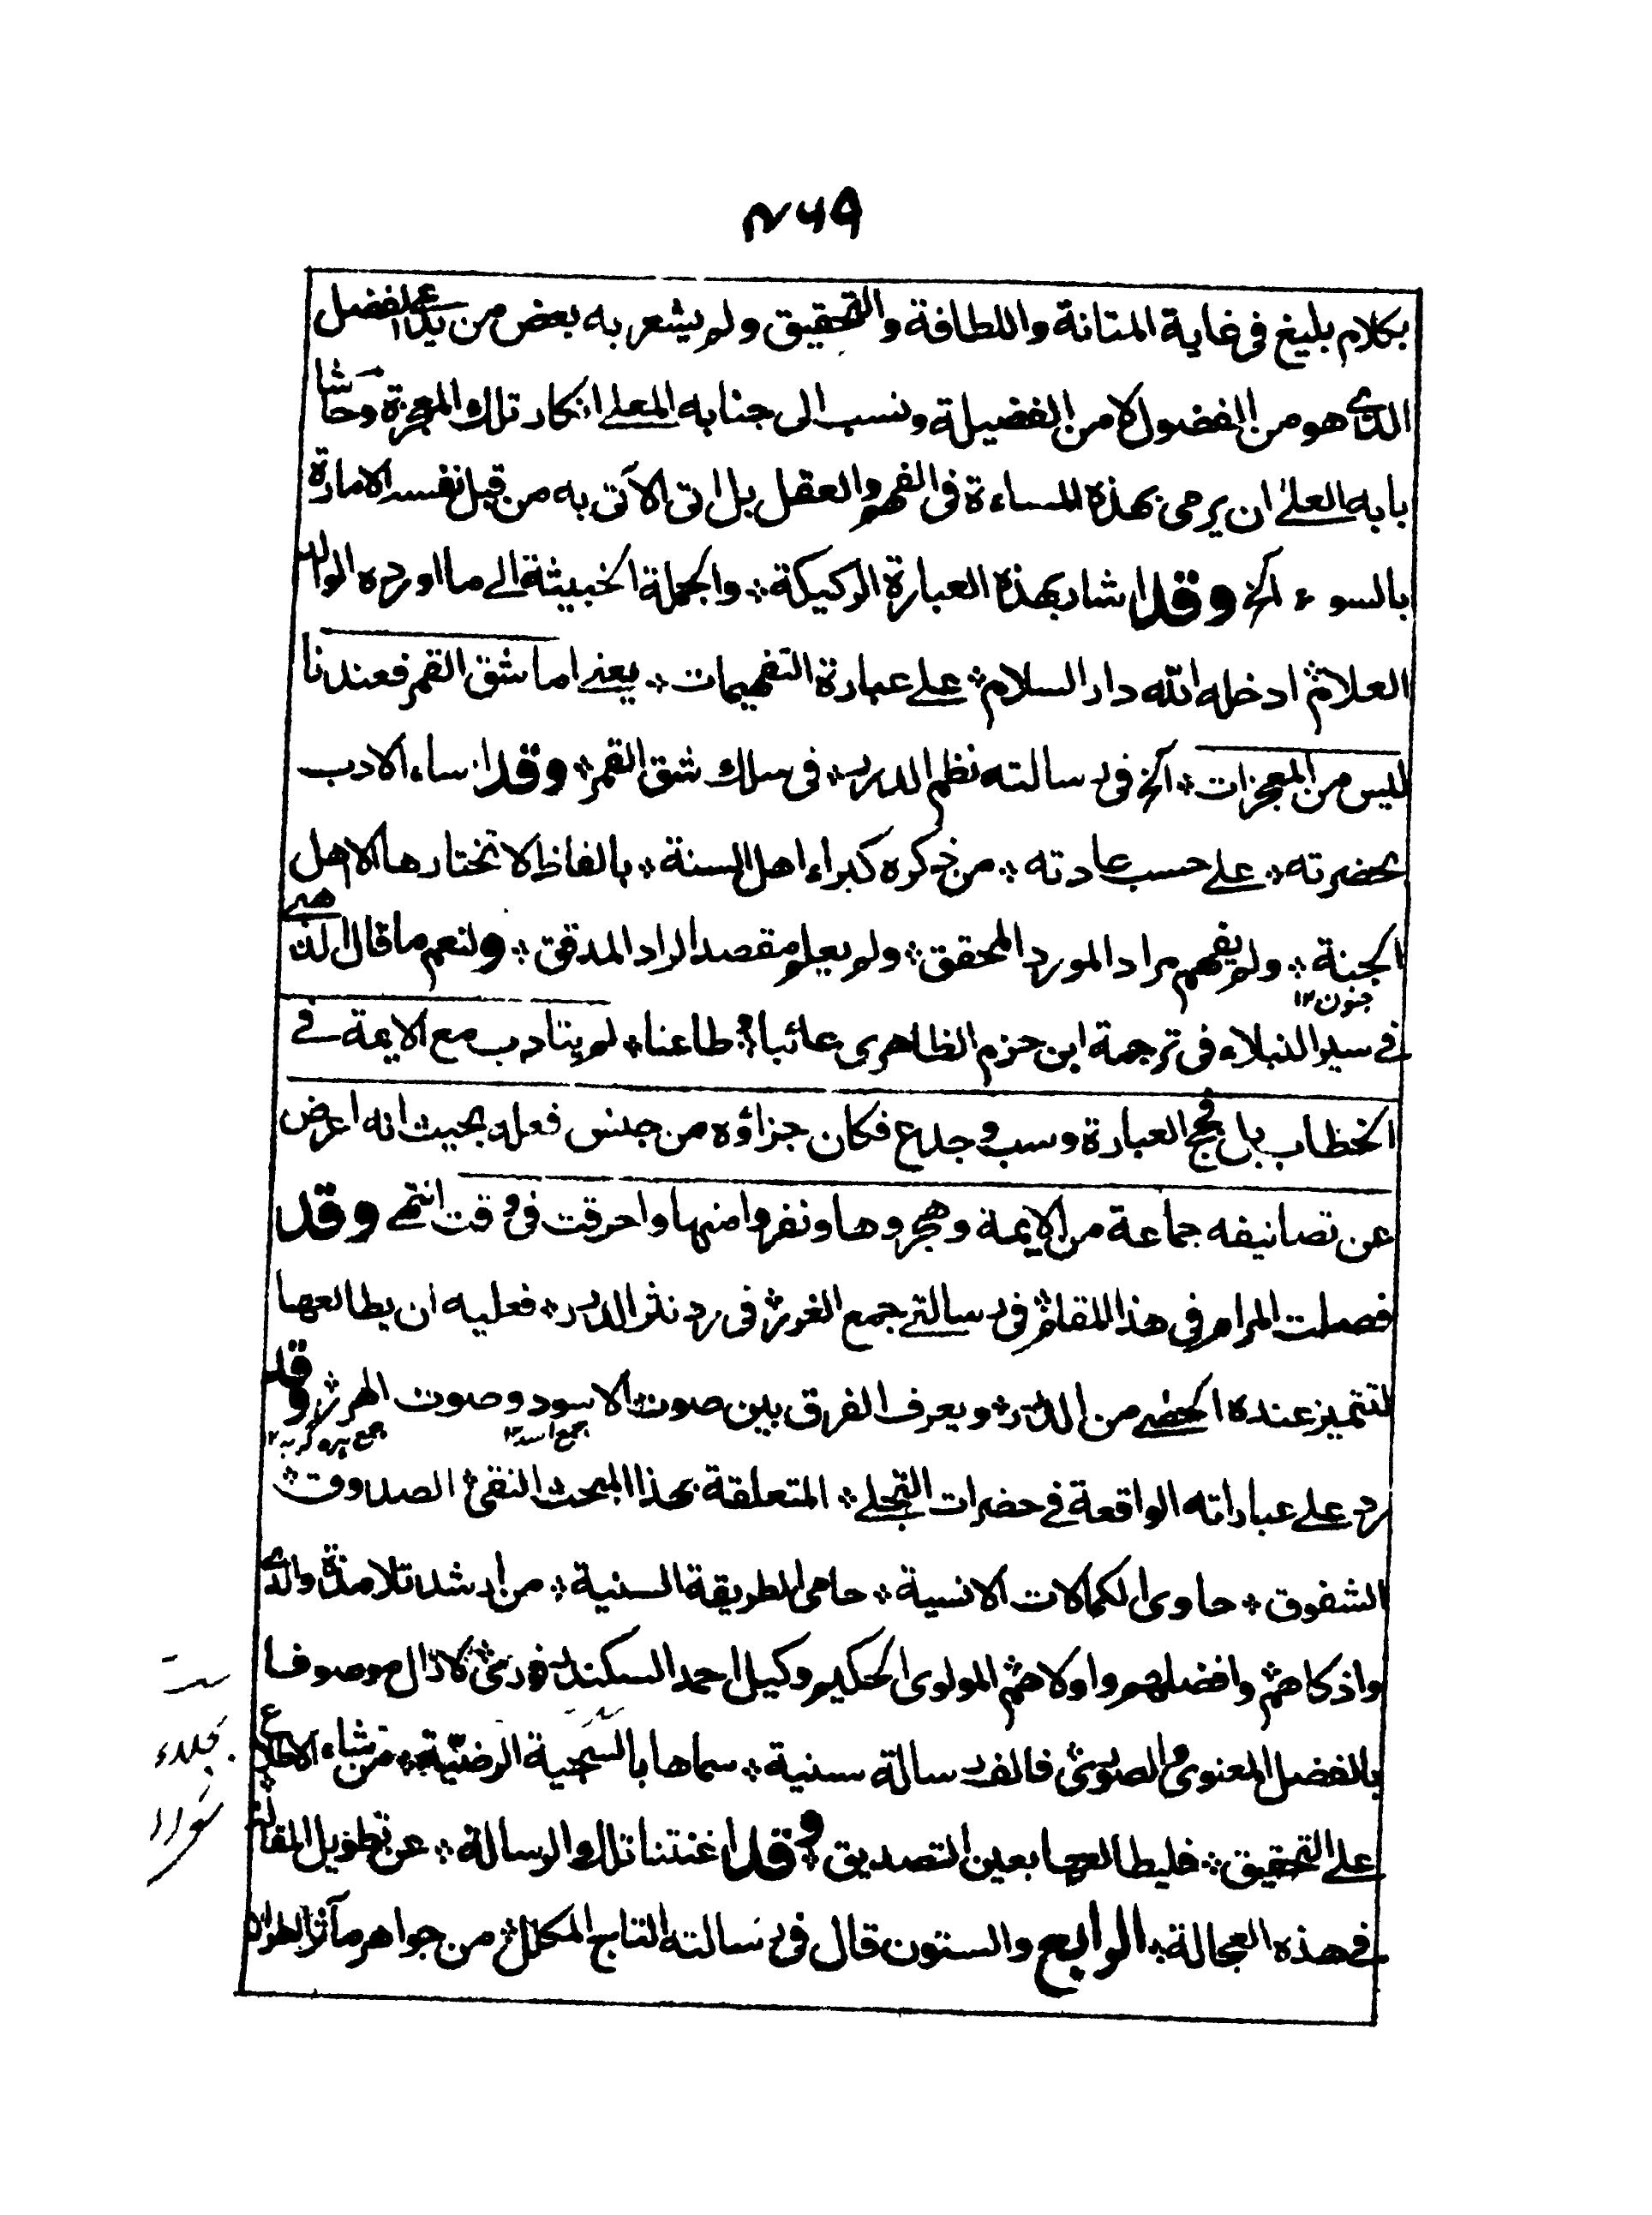 ۴۶۹
بكلام بليغ في غاية المتانة واللطافة والتحقيق ولم يشعر به بعض من يدعى الفضل
الذي هو من الفضول لا من الفضيلة ونسب الى جنابه المعلے انكار تلك المعجزة وحاشا
بابه العلے ان يرمى بهذه المساءة في الفهم والعقل بل اتى الآتى به من قبل نفسه الامارة
بالسوء الخ وقد اشار بهذه العبارة الركيكة ۞ والجملة الخبيثة الے ما اورده الوالد
العلام ۞ ادخله الله دار السلام ۞ علے عبارة التفهيمات ۞ يعنے اما شق القمر فعندنا
ليس من المعجزات ۞ الخ في رسالته نظم الدرر ۞ في سلك شق القمر ۞ وقد اساء الادب
بحضرته ۞ علے حسب عادته ۞ من ذكره كبراء اهل السنة ۞ بالفاظ لا تختارها الا اهل
الجنة ۞ ولم يفهم مراد المورد المحقق ۞ ولم يعلم مقصد الراد المدقق ۞ ولنعم ما قال الذهبے
جنون ۱۲
فے سير النبلاء في ترجمة ابن حزم الظاهرى عائبا ۞ طاعنا ۞ لم يتادب مع الايمة فے
الخطاب بل فجج العبارة وسب وجدع فكان جزاؤه من جنس فعله بحيث انه اعرض
عن تصانيفه جماعة من الايمة وهجروها ونفروا منها واحرقت في وقت انتهے وقد
فصلت المرام في هذا المقام ۞ في رسالتے جمع الغرر ۞ في رد نثر الدرر ۞ فعليه ان يطالعها
لتتميز عنده الحصے من الدرر ۞ ويعرف الفرق بين صوت الاسود وصوت الهرر ۞ وقد
جمع اسد ۱۲ جمع ہرہ گربہ ۱۲
رد علے عباراته الواقعة فے حضرات التجلے ۞ المتعلقة بهذا المبحث النقي الصدوق ۞
الشفوق ۞ حاوى الكمالات الانسية ۞ حامى الطريقة السنية ۞ من ارشد تلامذة والدي
واذكاهم ۞ وافضلهم واولاهم ۞ المولوى الحكيم وكيل احمد السكندرفورى ۞ لا زال موصوفا
بالفضل المعنوى والصورى ۞ فالف رسالة سنية ۞ سماها بالسجية الرضية ۞ من شاء الاطلاع
علے التحقيق ۞ فليطالعها بعين التصديق ۞ وقد اغنتنا تلك الرسالة ۞ عن تطويل المقالة ۞
فے هذه العجالة ۞ الرابع والستون قال في رسالته التاج المكلل ۞ من جواهر مآثر الطراز